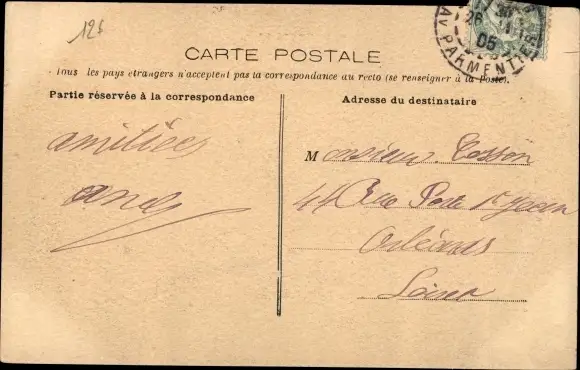 12f
CARTE POSTALE
Tous les pays étrangers n'acceptent pas la correspondance au recto (se renseigner à la Poste).
Partie réservée à la correspondance
Adresse du destinataire
Amitiées
Monsieur Cosson
44 Rue Porte St Jean
Orléans
Loiret
Av PARMENTIER
26
05